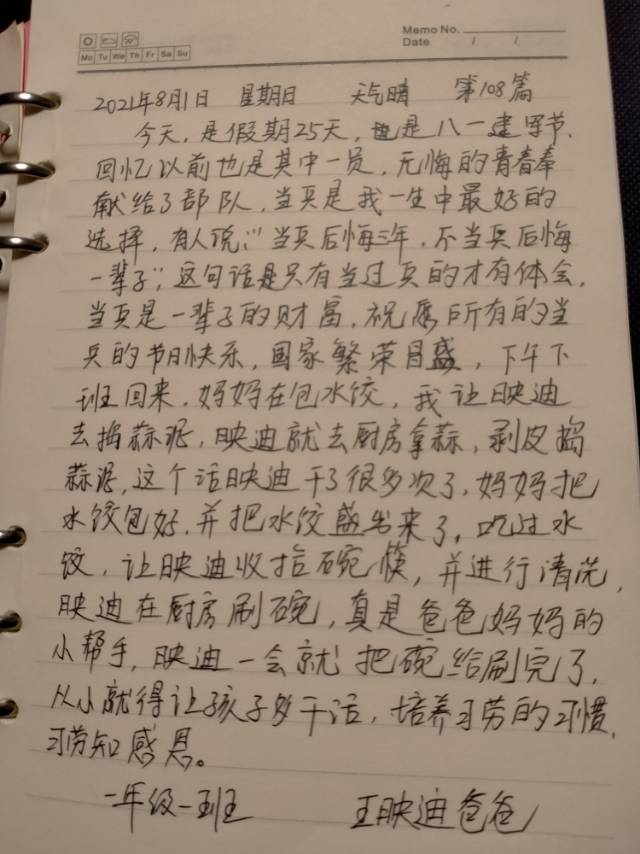 Memo No.
Date / /
Mo Tu We Th Fr Sa Su
2021年8月1日 星期日 天气晴 第108篇
今天,是假期25天,也是八一建军节,
回忆以前也是其中一员,无悔的青春奉
献给了部队,当兵是我一生中最好的
选择,有人说:"当兵后悔三年,不当兵后悔
一辈子",这句话是只有当过兵的才有体会,
当兵是一辈子的财富,祝愿所有的当
兵的节日快乐,国家繁荣昌盛,下午下
班回来,妈妈在包水饺,我让映迪
去捣蒜泥,映迪就去厨房拿蒜,剥皮捣
蒜泥,这个活映迪干了很多次了,妈妈把
水饺包好,并把水饺盛出来了,吃过水
饺,让映迪收拾碗筷,并进行清洗,
映迪在厨房刷碗,真是爸爸妈妈的
小帮手,映迪一会就把碗给刷完了,
从小就得让孩子多干活,培养习劳的习惯,
习劳知感恩。
一年级一班 王映迪爸爸